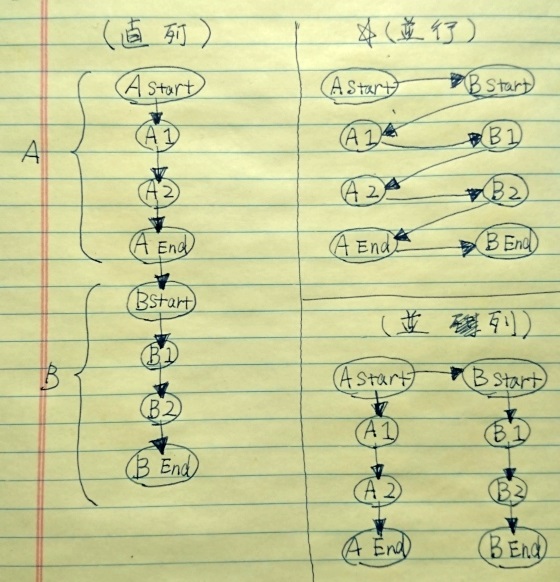 (直列)
A
A Start
A1
A2
A End
B
B Start
B1
B2
B End
☆(並行)
A Start
B Start
A1
B1
A2
B2
A End
B End
(並列)
A Start
B Start
A1
B1
A2
B2
A End
B End